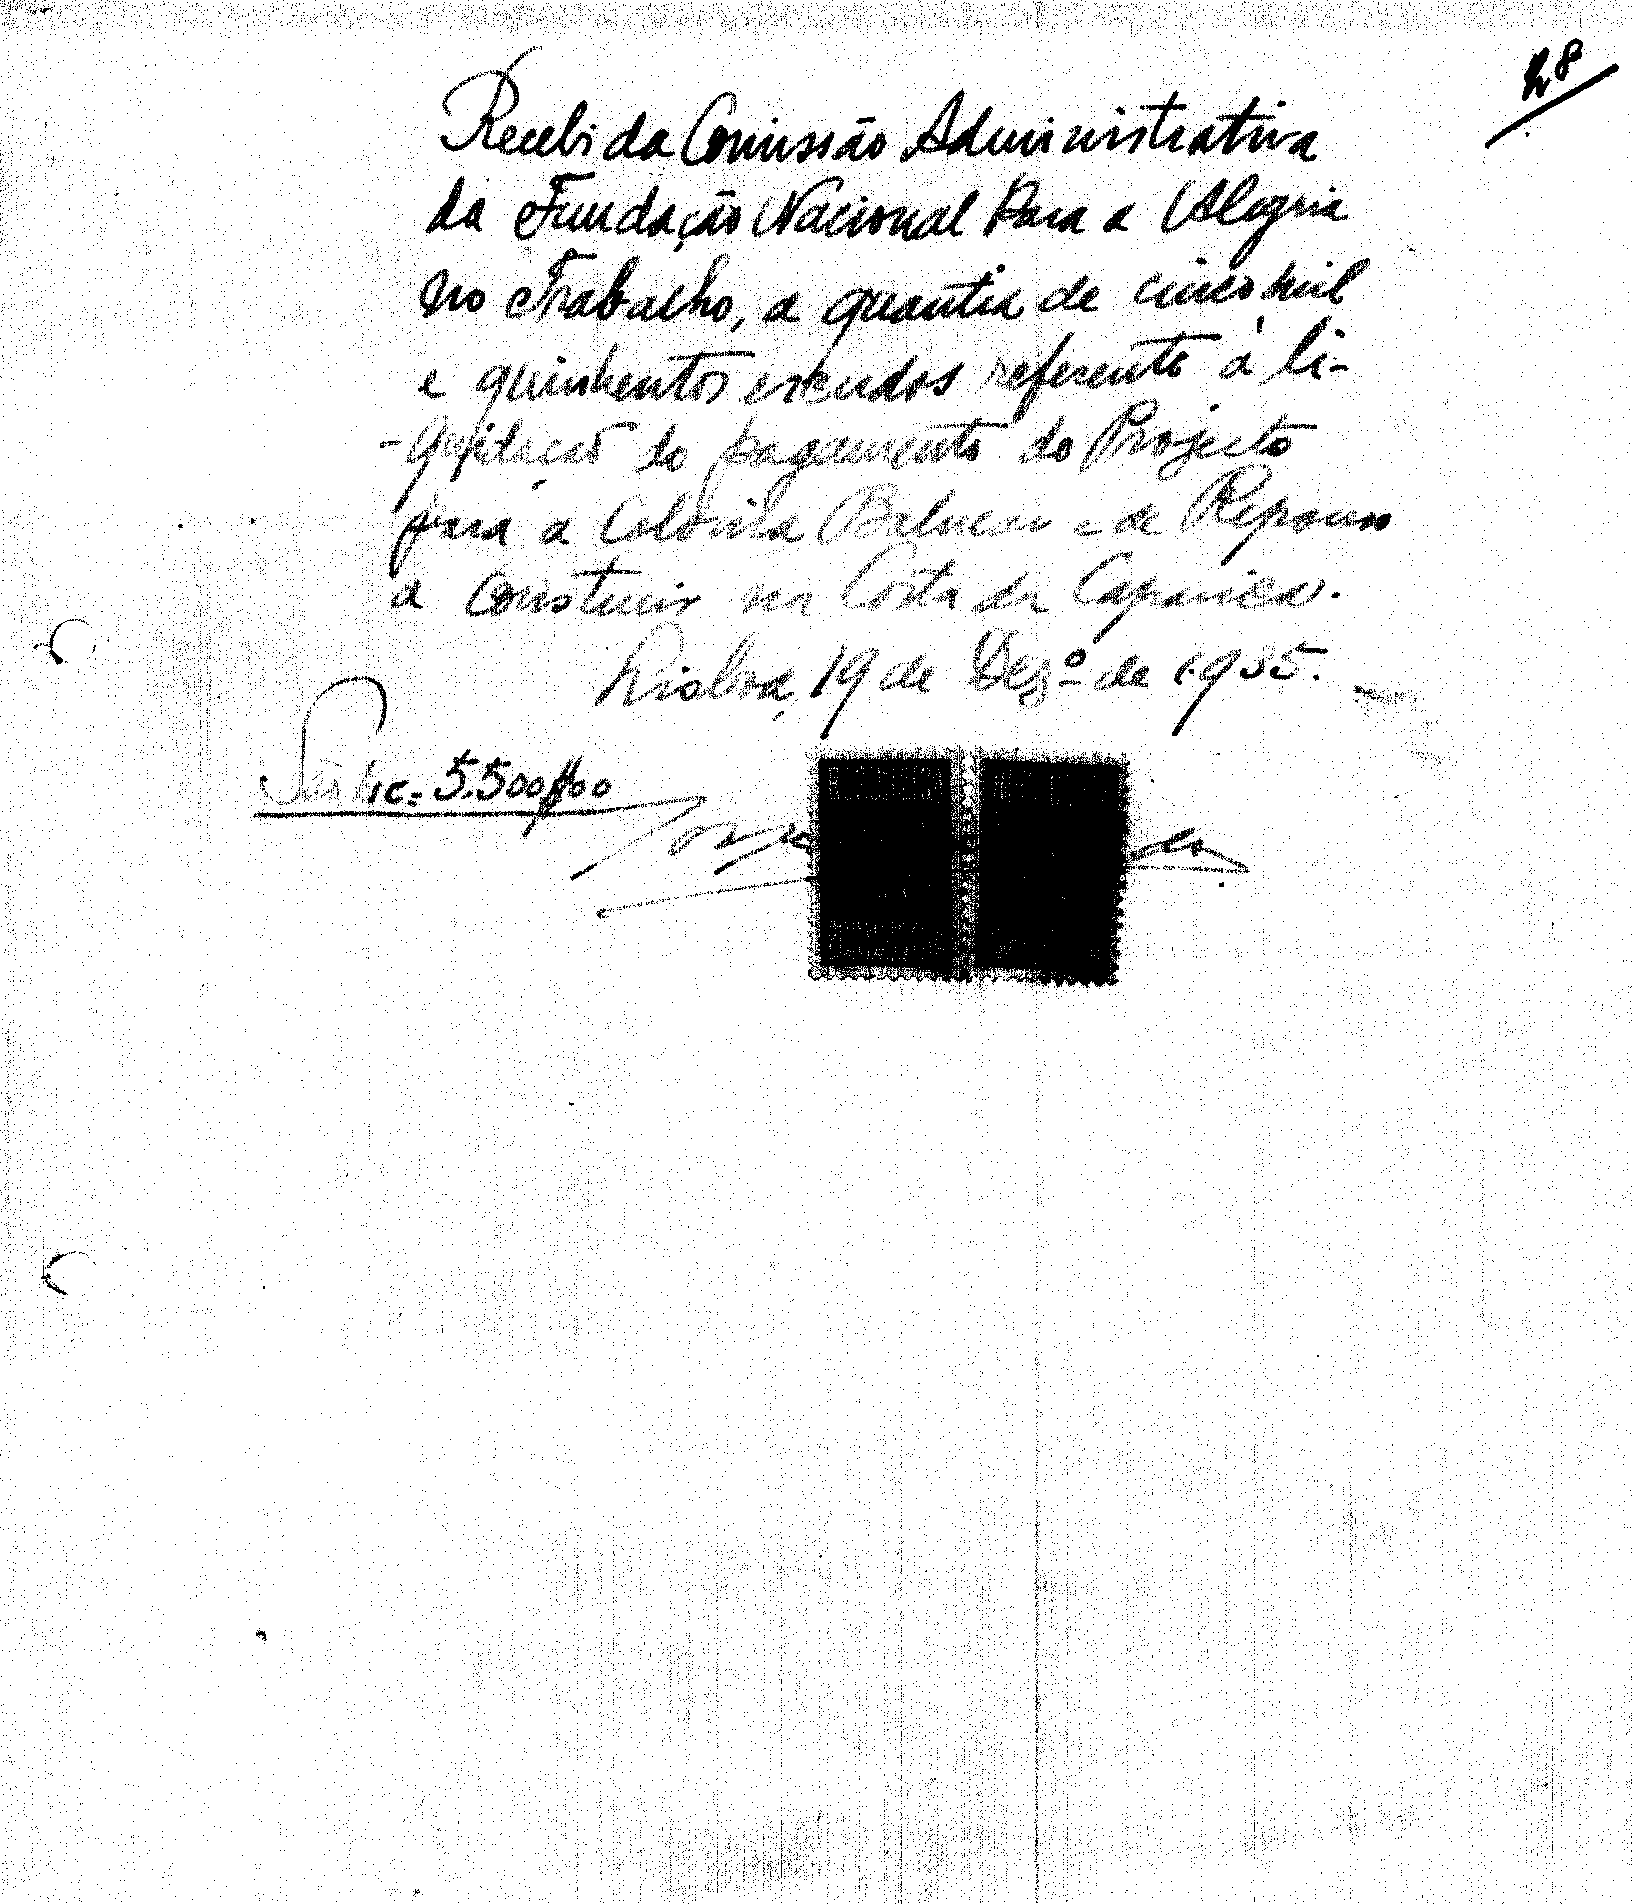 28
Recebi da Comissão Administrativa
da Fundação Nacional Para a Alegria
no Trabalho, a quantia de cinco mil
e quinhentos escudos referente à li-
-quidação do pagamento do Projecto
para a Colónia Balnear e de Repouso
a Construir na Costa da Caparica.
Lisboa, 19 de Dezº de 1935.
5.500$00